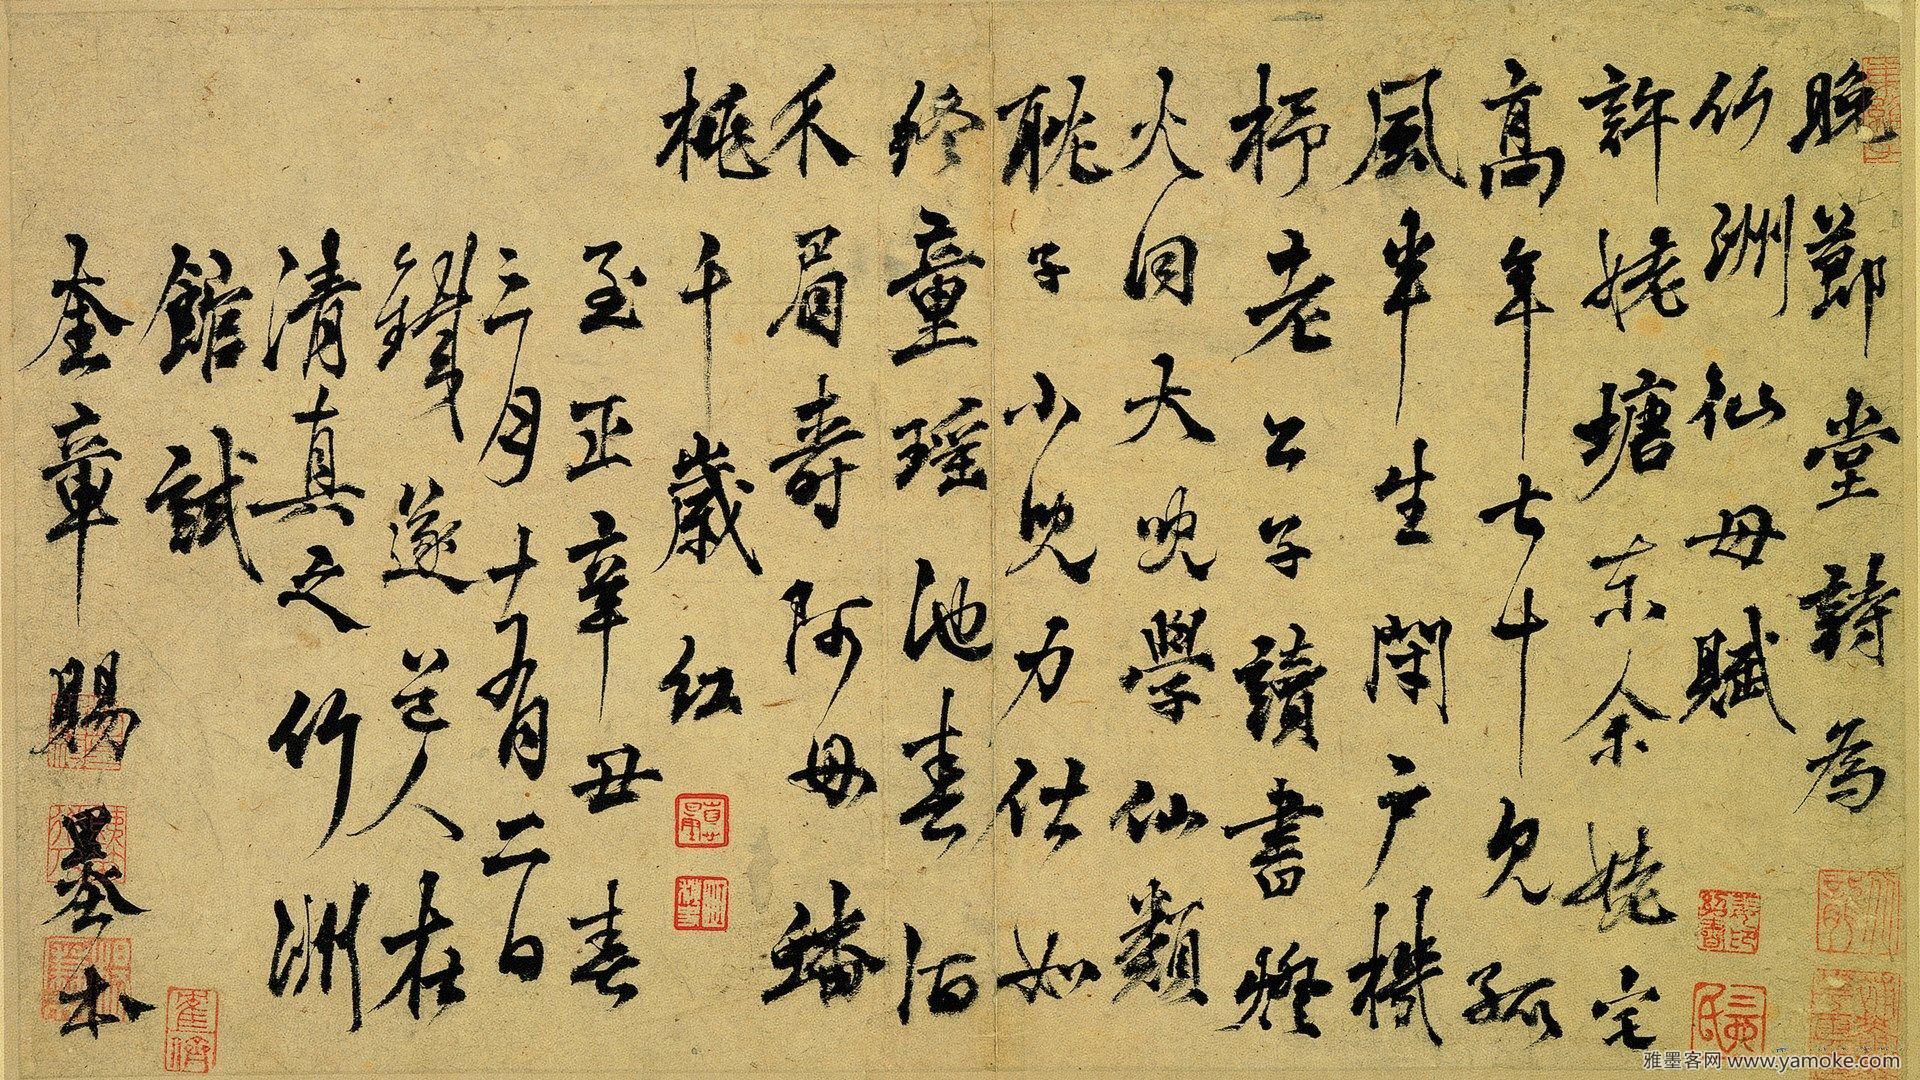 晚節堂詩為
竹洲仙母賦
許姥塘東余姥宅
高年七十見孤
風半生閑戶機
杼老公子讀書燈
火同大兒學仙類
耽子小兒力仕如
終童瑤池春酒
介眉壽阿母蟠
桃千歲紅
至正辛丑春
三月十有二日
鐵篴道人在
清真之竹洲
館試
奎章賜墨本
雅墨客网 www.yamoke.com